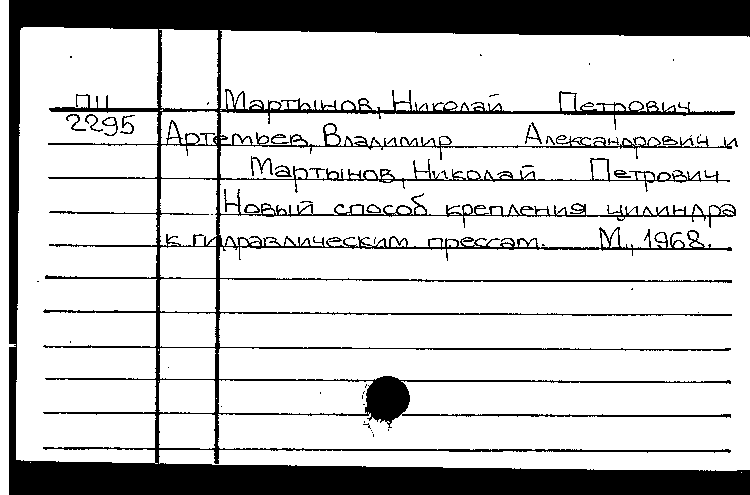 П11 Мартынов, Николай Петрович
2295 Артемьев, Владимир Александрович и
Мартынов, Николай Петрович
Новый способ крепления цилиндра
к гидравлическим прессам. М., 1968.